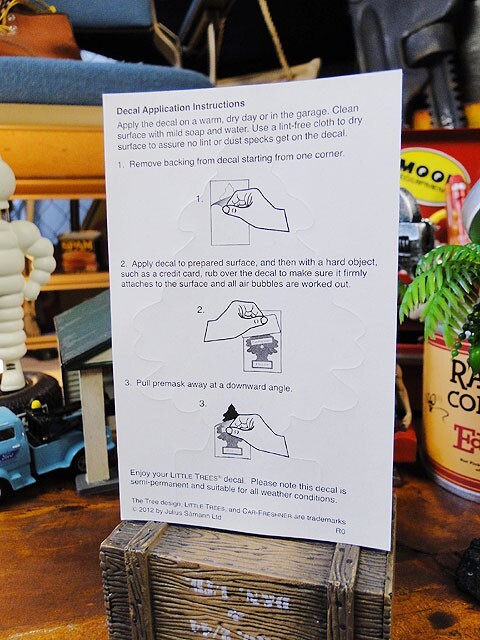 Decal Application Instructions
Apply the decal on a warm, dry day or in the garage. Clean
surface with mild soap and water. Use a lint-free cloth to dry
surface to assure no lint or dust specks get on the decal.
1. Remove backing from decal starting from one corner.
1.
2. Apply decal to prepared surface, and then with a hard object,
such as a credit card, rub over the decal to make sure it firmly
attaches to the surface and all air bubbles are worked out.
2.
3. Pull premask away at a downward angle.
3.
Enjoy your LITTLE TREES® decal. Please note this decal is
semi-permanent and suitable for all weather conditions.
The Tree design, LITTLE TREES, and CAR-FRESHNER are trademarks
© 2012 by Julius Sämann Ltd
R0
MOO
SPAM
RA
CO